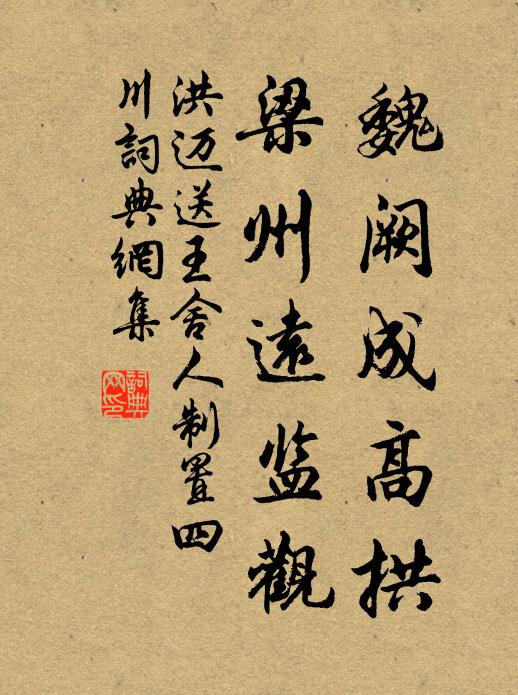 魏阙成高拱
梁州遠监觀
洪迈送王舍人制置四
川詞典網集
詞典网印